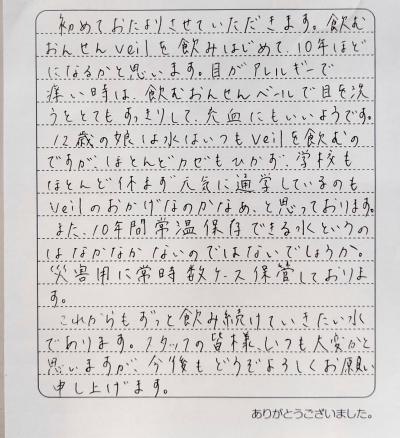 初めておたよりさせていただきます。飲む
おんせんveilを飲みはじめて、10年ほど
になるかと思います。目がアレルギーで
痒い時は、飲むおんせんベールで目を洗
うととてもすっきりして、充血にもいいようです。
12歳の娘は水はいつもveilを飲むの
ですが、ほとんどカゼもひかず、学校も
ほとんど休まず元気に通学しているのも
veilのおかげなのかなあ、と思っております。
また、10年間常温保存できる水というの
はなかなかないのではないでしょうか。
災害用に常時数ケース保管しておりま
す。
これからもずっと飲み続けていきたい水
であります。スタッフの皆様、いつも大変かと
思いますが、今後もどうぞよろしくお願い
申し上げます。
ありがとうございました。